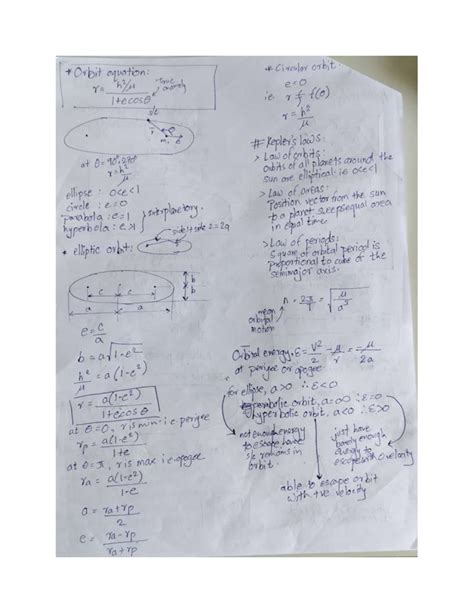 * Orbit equation:
r = h²/μ / 1+ecosθ
True
anomaly
s/c
r
θ
at θ = 90°, 270°
r = h²/μ
ellipse : 0<e<1
circle : e=0
parabola : e=1
hyperbola : e>1
} interplanetary.
* elliptic orbit:
side1 + side2 = 2a
c
c
a
a
b
b
e = c/a
b = a√1-e²
h²/μ = a(1-e²)
r = a(1-e²) / 1+ecosθ
at θ=0, r is min i.e perigee
rp = a(1-e²) / 1+e
at θ=π, r is max i.e apogee
ra = a(1-e²) / 1-e
a = ra+rp / 2
e = ra-rp / ra+rp
* Circular orbit:
e=0
ie r ≠ f(θ)
r = h²/μ
# Kepler's laws:
> Law of orbits:
orbits of all planets around the
sun are elliptical ie 0<e<1
> Law of areas:
Position vector from the sun
to a planet sweeps equal area
in equal time.
> Law of periods:
Square of orbital period is
proportional to cube of the
semimajor axis.
mean
orbital
motion
n = 2π/T = √μ/a³
Orbital energy, ε = v²/2 - μ/r = -μ/2a
at perigee or apogee
for ellipse, a>0 ∴ ε<0
parabolic orbit, a=∞ ∴ ε=0
hyperbolic orbit, a<0 ∴ ε>0
not enough energy
to escape hence
s/c remains in
orbit.
just have
barely enough
energy to
escape with 0 velocity
able to escape orbit
with +ve velocity